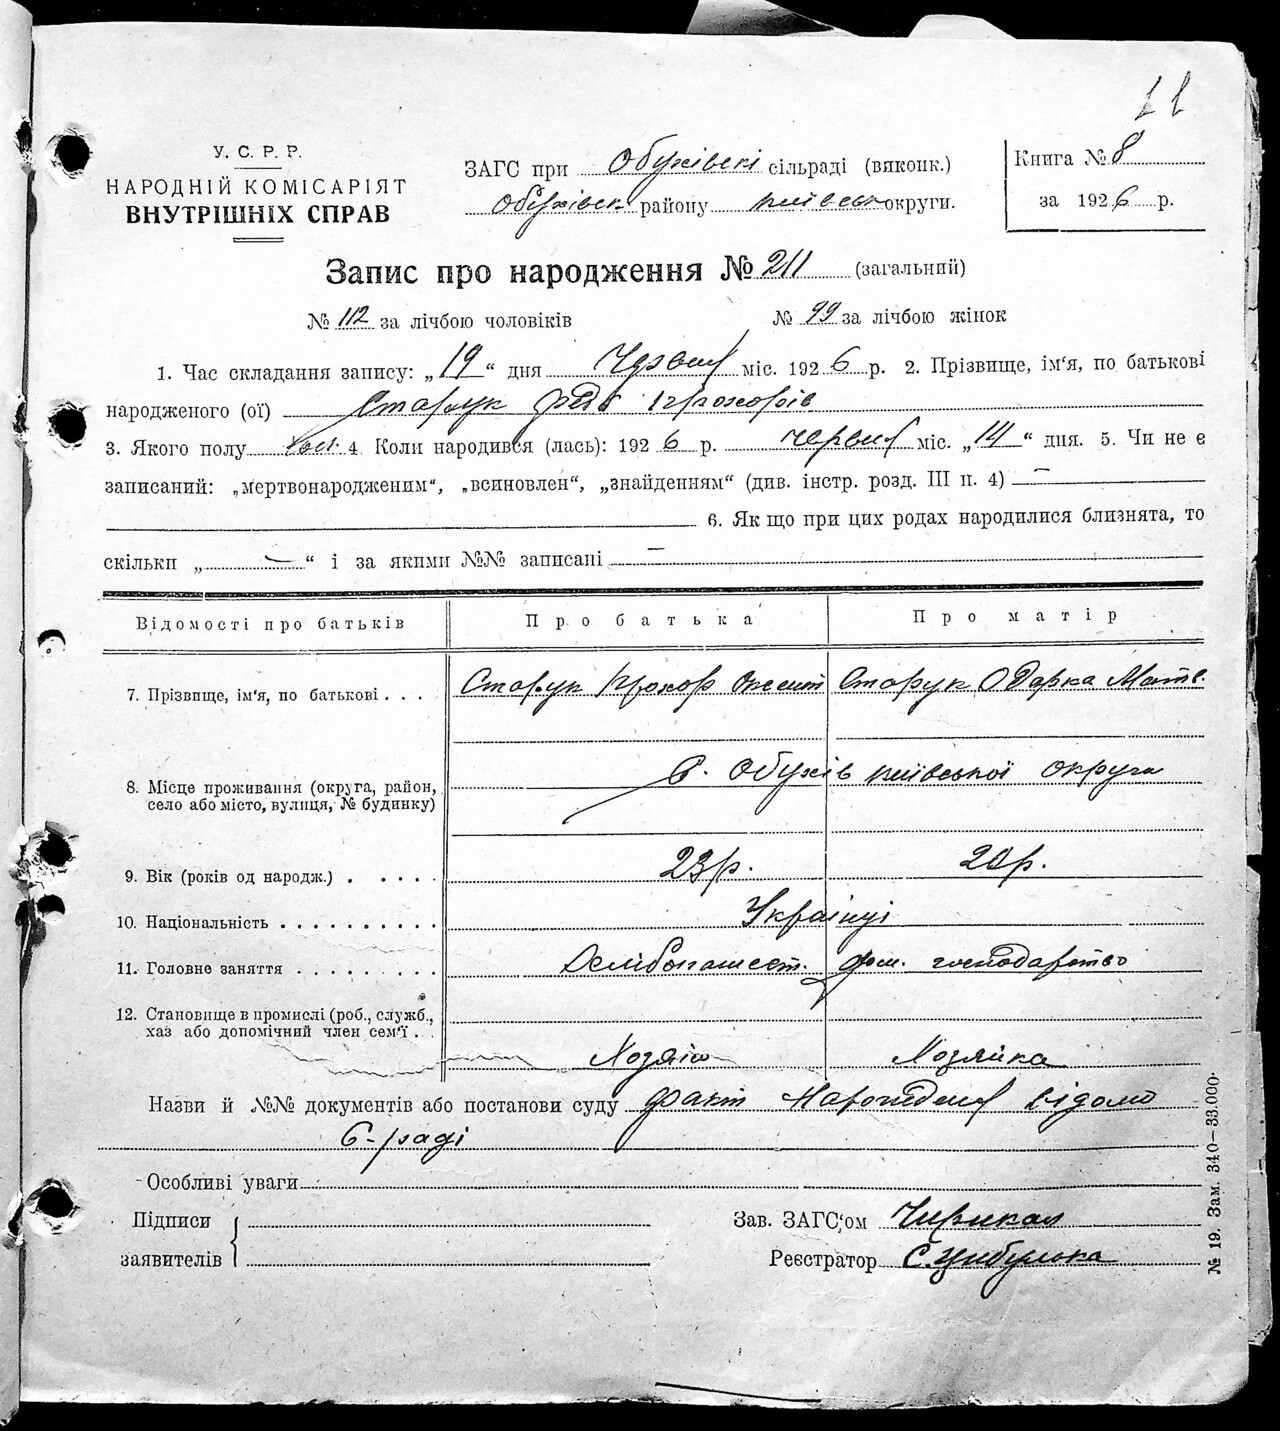 11
У. С. Р. Р.
НАРОДНІЙ КОМІСАРІЯТ
ВНУТРІШНІХ СПРАВ
ЗАГС при Обухівскі сільраді (виконк.)
Обухівск району київськ округи.
Книга № 8
за 1926 р.
Запис про народження № 211 (загальний)
№ 112 за лічбою чоловіків № 99 за лічбою жінок
1. Час складання запису: „19“ дня Червня міс. 1926 р. 2. Прізвище, ім‘я, по батькові
народженого (ої) Старук Прохорів
3. Якого полу 4. Коли народився (лась): 1926 р. червня міс. „14“ дня. 5. Чи не є
записаний: „мертвонародженим“, „всиновлен“, „знайденням“ (див. інстр. розд. III п. 4) —
6. Як що при цих родах народилися близнята, то
скільки „—“ і за якими №№ записані —
Відомості про батьків Про батька Про матір
7. Прізвище, ім‘я, по батькові . . . Старук Прохор Старук Одарка Матв.
8. Місце проживання (округа, район,
село або місто, вулиця, № будинку) С. Обухів київської округи
9. Вік (років од народж.) . . . . . 23 р. 20 р.
10. Національність . . . . . . . . . . Українці
11. Головне заняття . . . . . . . . . Хлібопашест. дом. господарство
12. Становище в промислі (роб., служб.,
хаз або допомічний член сем‘ї . . Хозяін Хозяйка
Назви й №№ документів або постанови суду факт народження відомо
С-раді
Особливі уваги
Підписи
заявителів
Зав. ЗАГС‘ом
Реєстратор С. Цибулька
№ 19. Зам. 340—33.000.